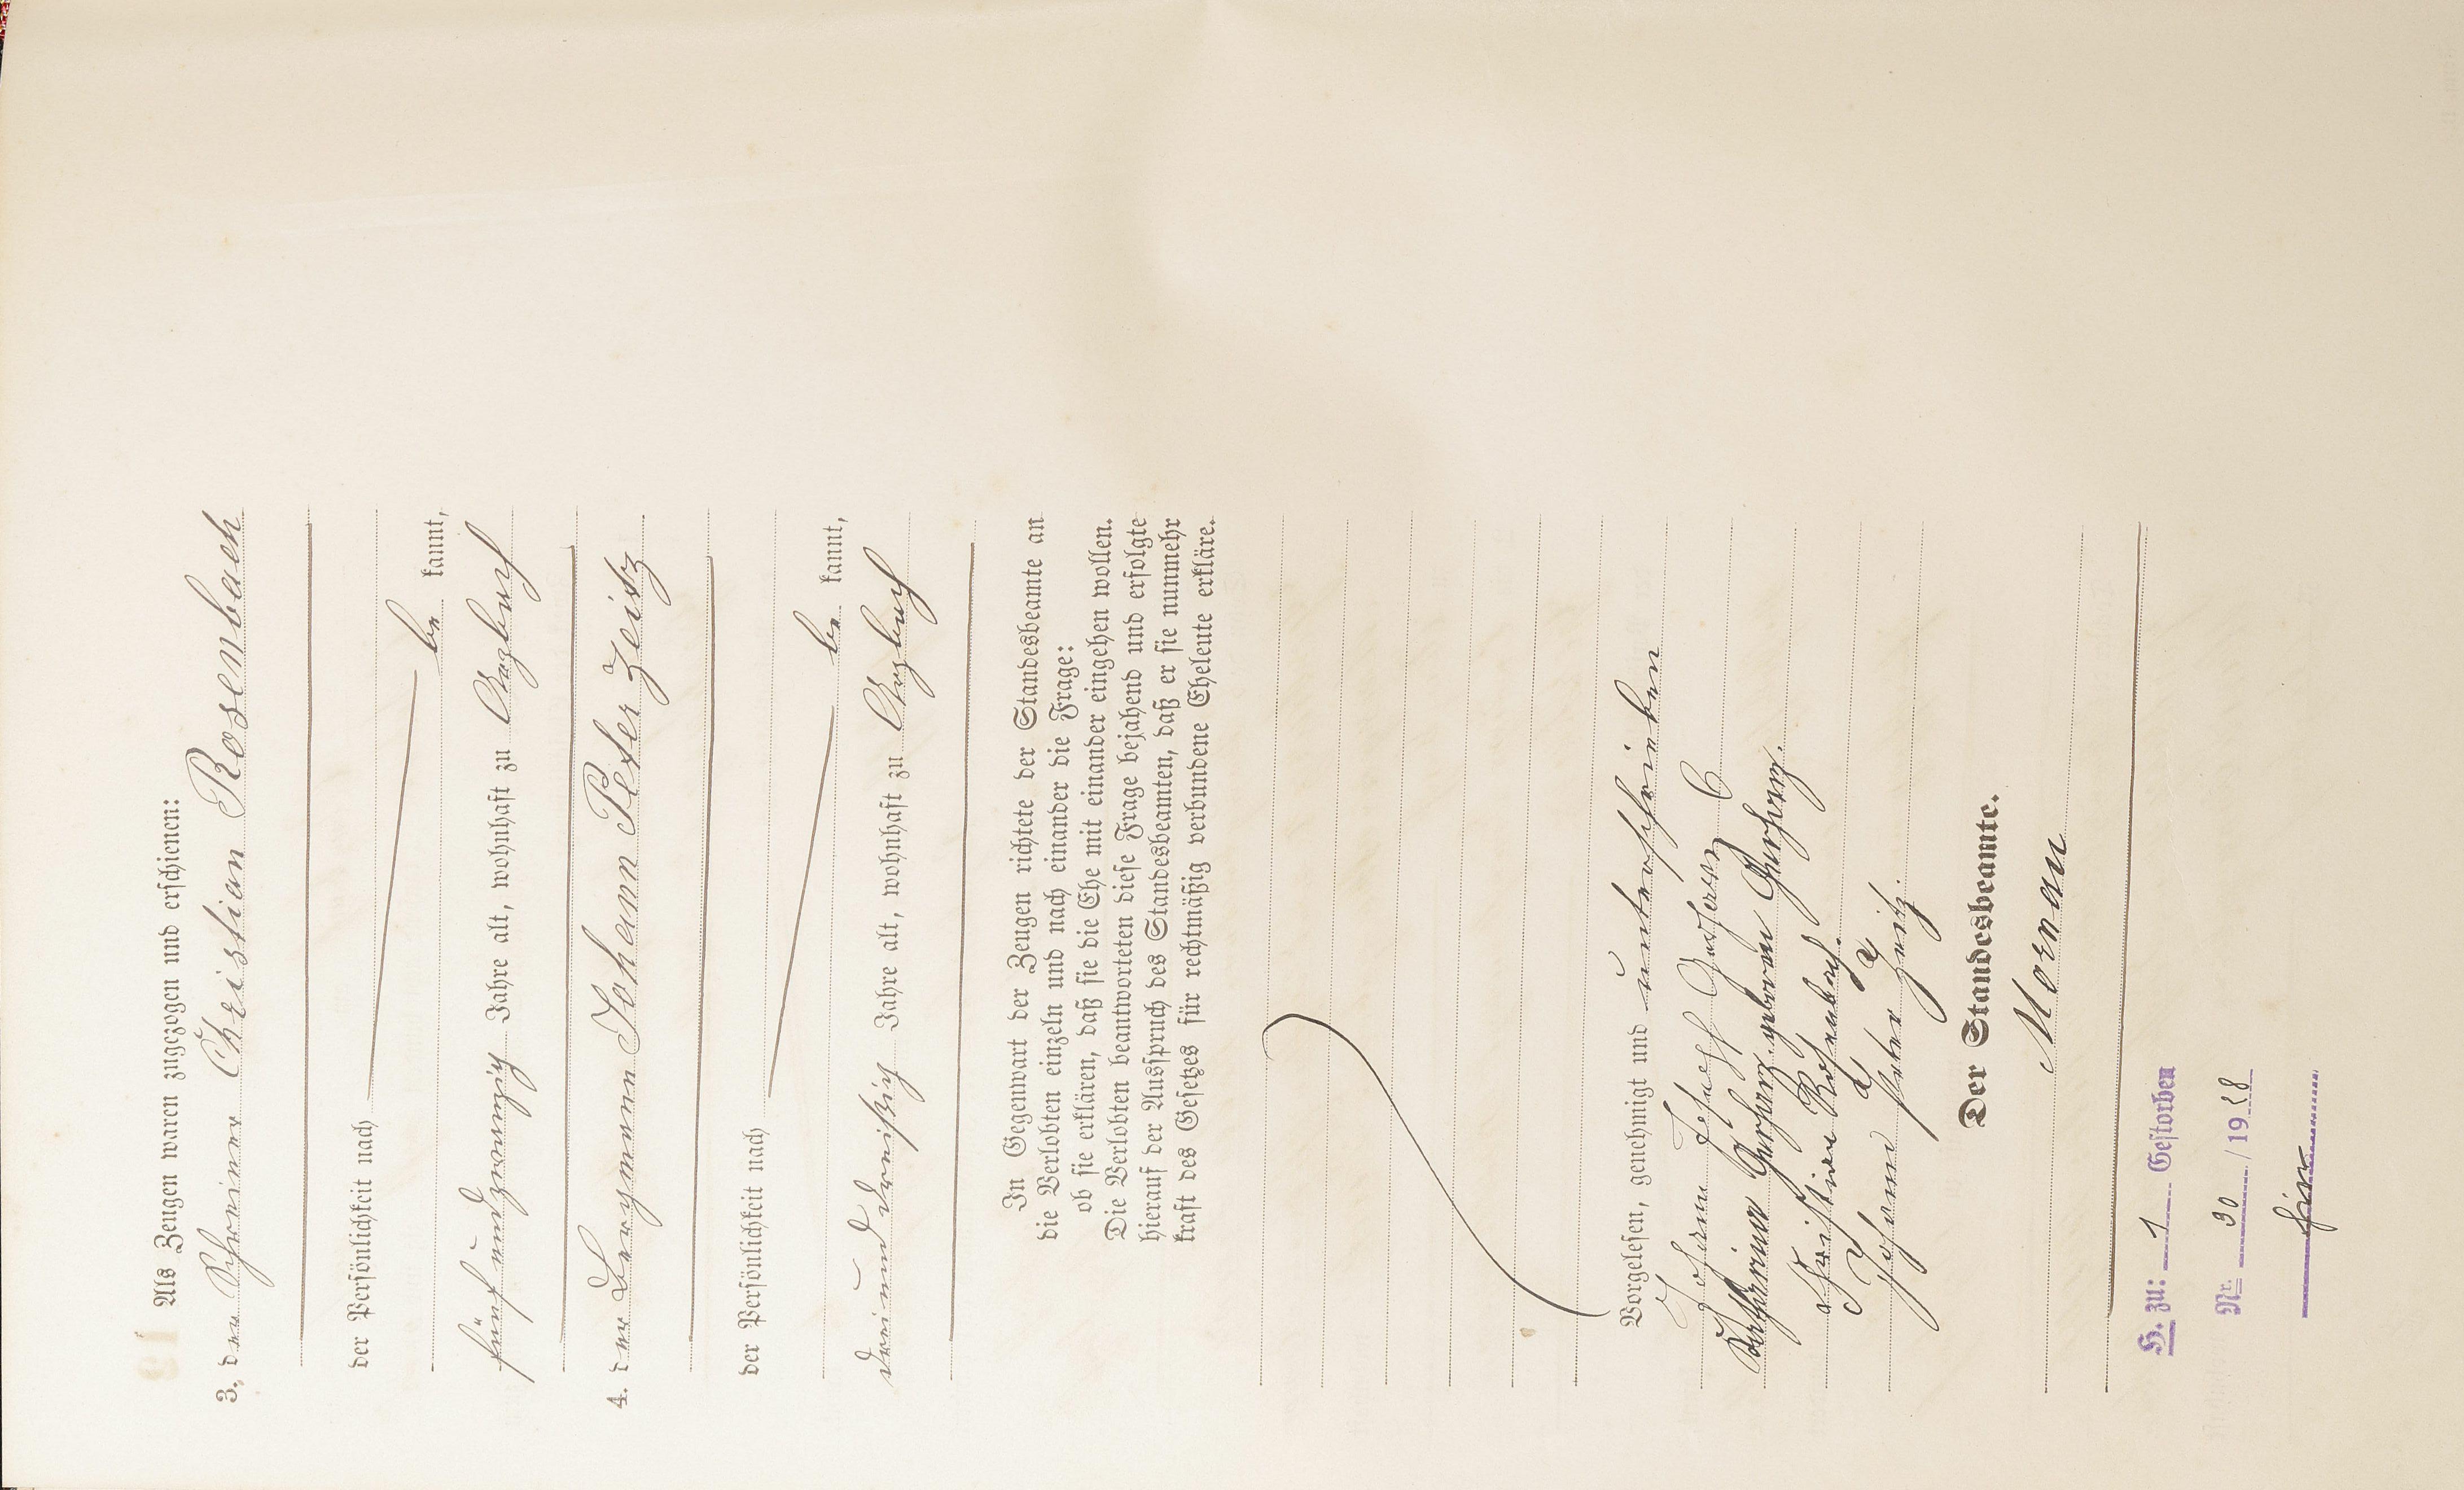 Als Zeugen waren zugezogen und erschienen:
3. der Schreiner Christian Rosenbach
der Persönlichkeit nach
be kannt,
fünfundzwanzig Jahre alt, wohnhaft zu
4. der Bergmann Johann Peter Zeitz
der Persönlichkeit nach
be kannt,
dreiunddreißig Jahre alt, wohnhaft zu
In Gegenwart der Zeugen richtete der Standesbeamte an
die Verlobten einzeln und nach einander die Frage:
ob sie erklären, daß sie die Ehe mit einander eingehen wollen.
Die Verlobten beantworteten diese Frage bejahend und erfolgte
hierauf der Ausspruch des Standesbeamten, daß er sie nunmehr
kraft des Gesetzes für rechtmäßig verbundene Eheleute erkläre.
Vorgelesen, genehmigt und unterschrieben
Johann
Katharina geborene
Christian Rosenbach.
Johann Peter Zeitz.
Der Standesbeamte.
H. zu: 1 Gestorben
Nr. 30 / 19